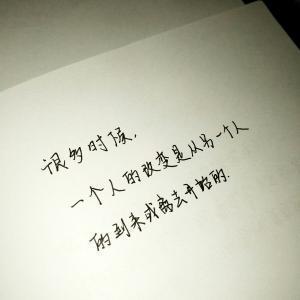 很多时候,
一个人的改变是从另一个人
的到来或离去开始的.